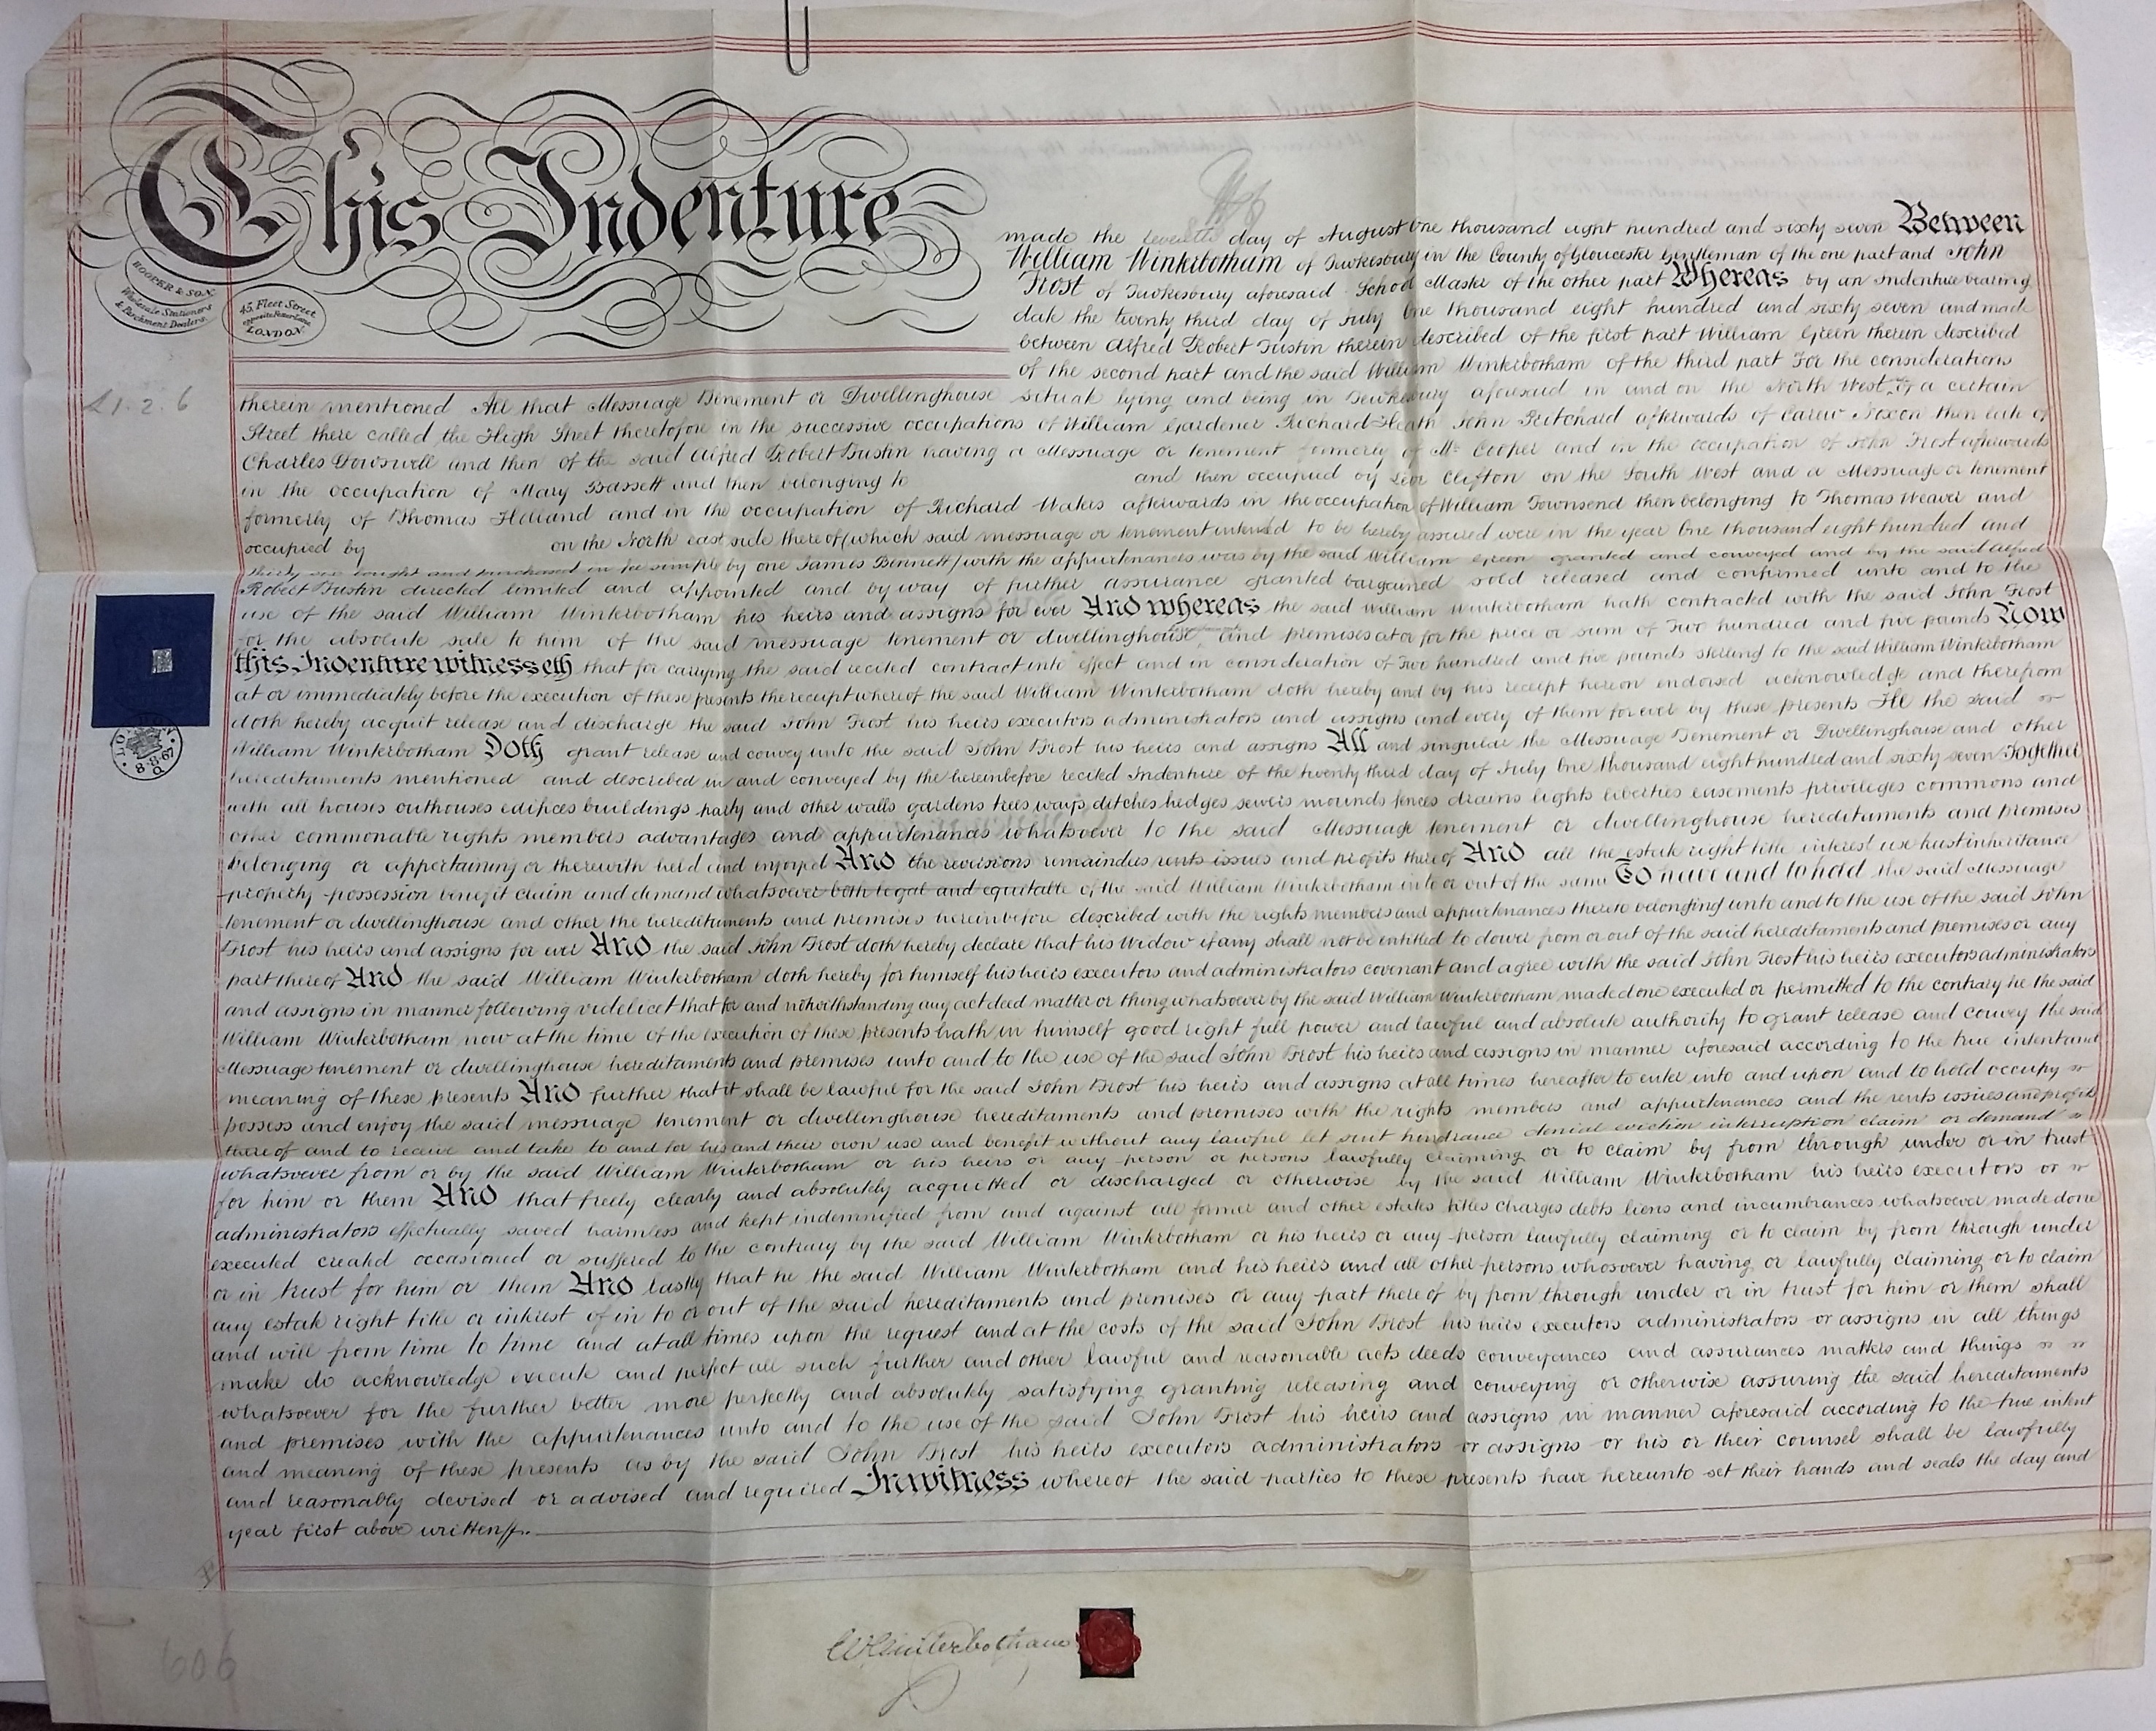 This Indenture
HOOPER & SON.
Wholesale Stationers
& Parchment Dealers.
45, Fleet Street
opposite Fetter Lane
LONDON.
made the seventh day of August One thousand eight hundred and sixty seven Between
William Winterbotham of Tewkesbury in the County of Gloucester Gentleman of the one part and John
Frost of Tewkesbury aforesaid School Master of the other part Whereas by an Indenture bearing
date the twenty third day of July One thousand eight hundred and sixty seven and made
between Alfred Robert Tustin therein described of the first part William Green therein described
of the second part and the said William Winterbotham of the third part For the considerations
£1.2.6
therein mentioned All that Messuage Tenement or Dwellinghouse situate lying and being in Tewkesbury aforesaid in and on the North West of a certain
Street there called the High Street theretofore in the successive occupations of William Gardener Richard Heath John Pritchard afterwards of Carew Noxon then late of
Charles Dowswell and then of the said Alfred Robert Tustin having a Messuage or tenement formerly of Mr Cooper and in the occupation of John Frost afterwards
in the occupation of Mary Bassett and then belonging to and then occupied by Clifton on the South West and a Messuage or tenement
formerly of Thomas Holland and in the occupation of Richard Waters afterwards in the occupation of William Townsend then belonging to Thomas Weaver and
occupied by on the North east side thereof (which said messuage or tenement intended to be hereby assured were in the year One thousand eight hundred and
thirty six bought and purchased in fee simple by one James Bennett) with the appurtenances was by the said William Green granted and conveyed and by the said Alfred
Robert Tustin directed limited and appointed and by way of further assurance granted bargained sold released and confirmed unto and to the
use of the said William Winterbotham his heirs and assigns for ever And whereas the said William Winterbotham hath contracted with the said John Frost
for the absolute sale to him of the said messuage tenement or dwellinghouse and premises at or for the price or sum of Two hundred and five pounds Now
this Indenture witnesseth that for carrying the said recited contract into effect and in consideration of Two hundred and five pounds sterling to the said William Winterbotham
at or immediately before the execution of these presents the receipt whereof the said William Winterbotham doth hereby and by his receipt hereon endorsed acknowledge and therefrom
doth hereby acquit release and discharge the said John Frost his heirs executors administrators and assigns and every of them for ever by these presents He the said
William Winterbotham Doth grant release and convey unto the said John Frost his heirs and assigns All and singular the Messuage Tenement or Dwellinghouse and other
hereditaments mentioned and described in and conveyed by the hereinbefore recited Indenture of the twenty third day of July One thousand eight hundred and sixty seven Together
with all houses outhouses edifices buildings party and other walls gardens trees ways ditches hedges sewers mounds fences drains lights liberties easements privileges commons and
other commonable rights members advantages and appurtenances whatsoever to the said Messuage tenement or dwellinghouse hereditaments and premises
belonging or appertaining or therewith held and enjoyed And the revisions remainders rents issues and profits thereof And all the estate right title interest use trust inheritance
property possession benefit claim and demand whatsoever both legal and equitable of the said William Winterbotham in to or out of the same To have and to hold the said Messuage
tenement or dwellinghouse and other the hereditaments and premises hereinbefore described with the rights members and appurtenances thereto belonging unto and to the use of the said John
Frost his heirs and assigns for ever And the said John Frost doth hereby declare that his Widow if any shall not be entitled to dower from or out of the said hereditaments and premises or any
part thereof And the said William Winterbotham doth hereby for himself his heirs executors and administrators covenant and agree with the said John Frost his heirs executors administrators
and assigns in manner following videlicet that for and notwithstanding any act deed matter or thing whatsoever by the said William Winterbotham made done executed or permitted to the contrary he the said
William Winterbotham now at the time of the execution of these presents hath in himself good right full power and lawful and absolute authority to grant release and convey the said
Messuage tenement or dwellinghouse hereditaments and premises unto and to the use of the said John Frost his heirs and assigns in manner aforesaid according to the true intent and
meaning of these presents And further that it shall be lawful for the said John Frost his heirs and assigns at all times hereafter to enter into and upon and to hold occupy
possess and enjoy the said messuage tenement or dwellinghouse hereditaments and premises with the rights members and appurtenances and the rents issues and profits
thereof and to receive and take to and for his and their own use and benefit without any lawful let suit hindrance denial eviction interruption claim or demand
whatsoever from or by the said William Winterbotham or his heirs or any person or persons lawfully claiming or to claim by from through under or in trust
for him or them And that freely clearly and absolutely acquitted or discharged or otherwise by the said William Winterbotham his heirs executors or
administrators effectually saved harmless and kept indemnified from and against all former and other estates titles charges debts liens and incumbrances whatsoever made done
executed created occasioned or suffered to the contrary by the said William Winterbotham or his heirs or any person lawfully claiming or to claim by from through under
or in trust for him or them And lastly that he the said William Winterbotham and his heirs and all other persons whosoever having or lawfully claiming or to claim
any estate right title or interest of in to or out of the said hereditaments and premises or any part thereof by from through under or in trust for him or them shall
and will from time to time and at all times upon the request and at the costs of the said John Frost his heirs executors administrators or assigns in all things
make do acknowledge execute and perfect all such further and other lawful and reasonable acts deeds conveyances and assurances matters and things
whatsoever for the further better more perfectly and absolutely satisfying granting releasing and conveying or otherwise assuring the said hereditaments
and premises with the appurtenances unto and to the use of the said John Frost his heirs and assigns in manner aforesaid according to the true intent
and meaning of these presents as by the said John Frost his heirs executors administrators or assigns or his or their counsel shall be lawfully
and reasonably devised or advised and required In witness whereof the said parties to these presents have hereunto set their hands and seals the day and
year first above written
8.8.67
WWinterbotham
606